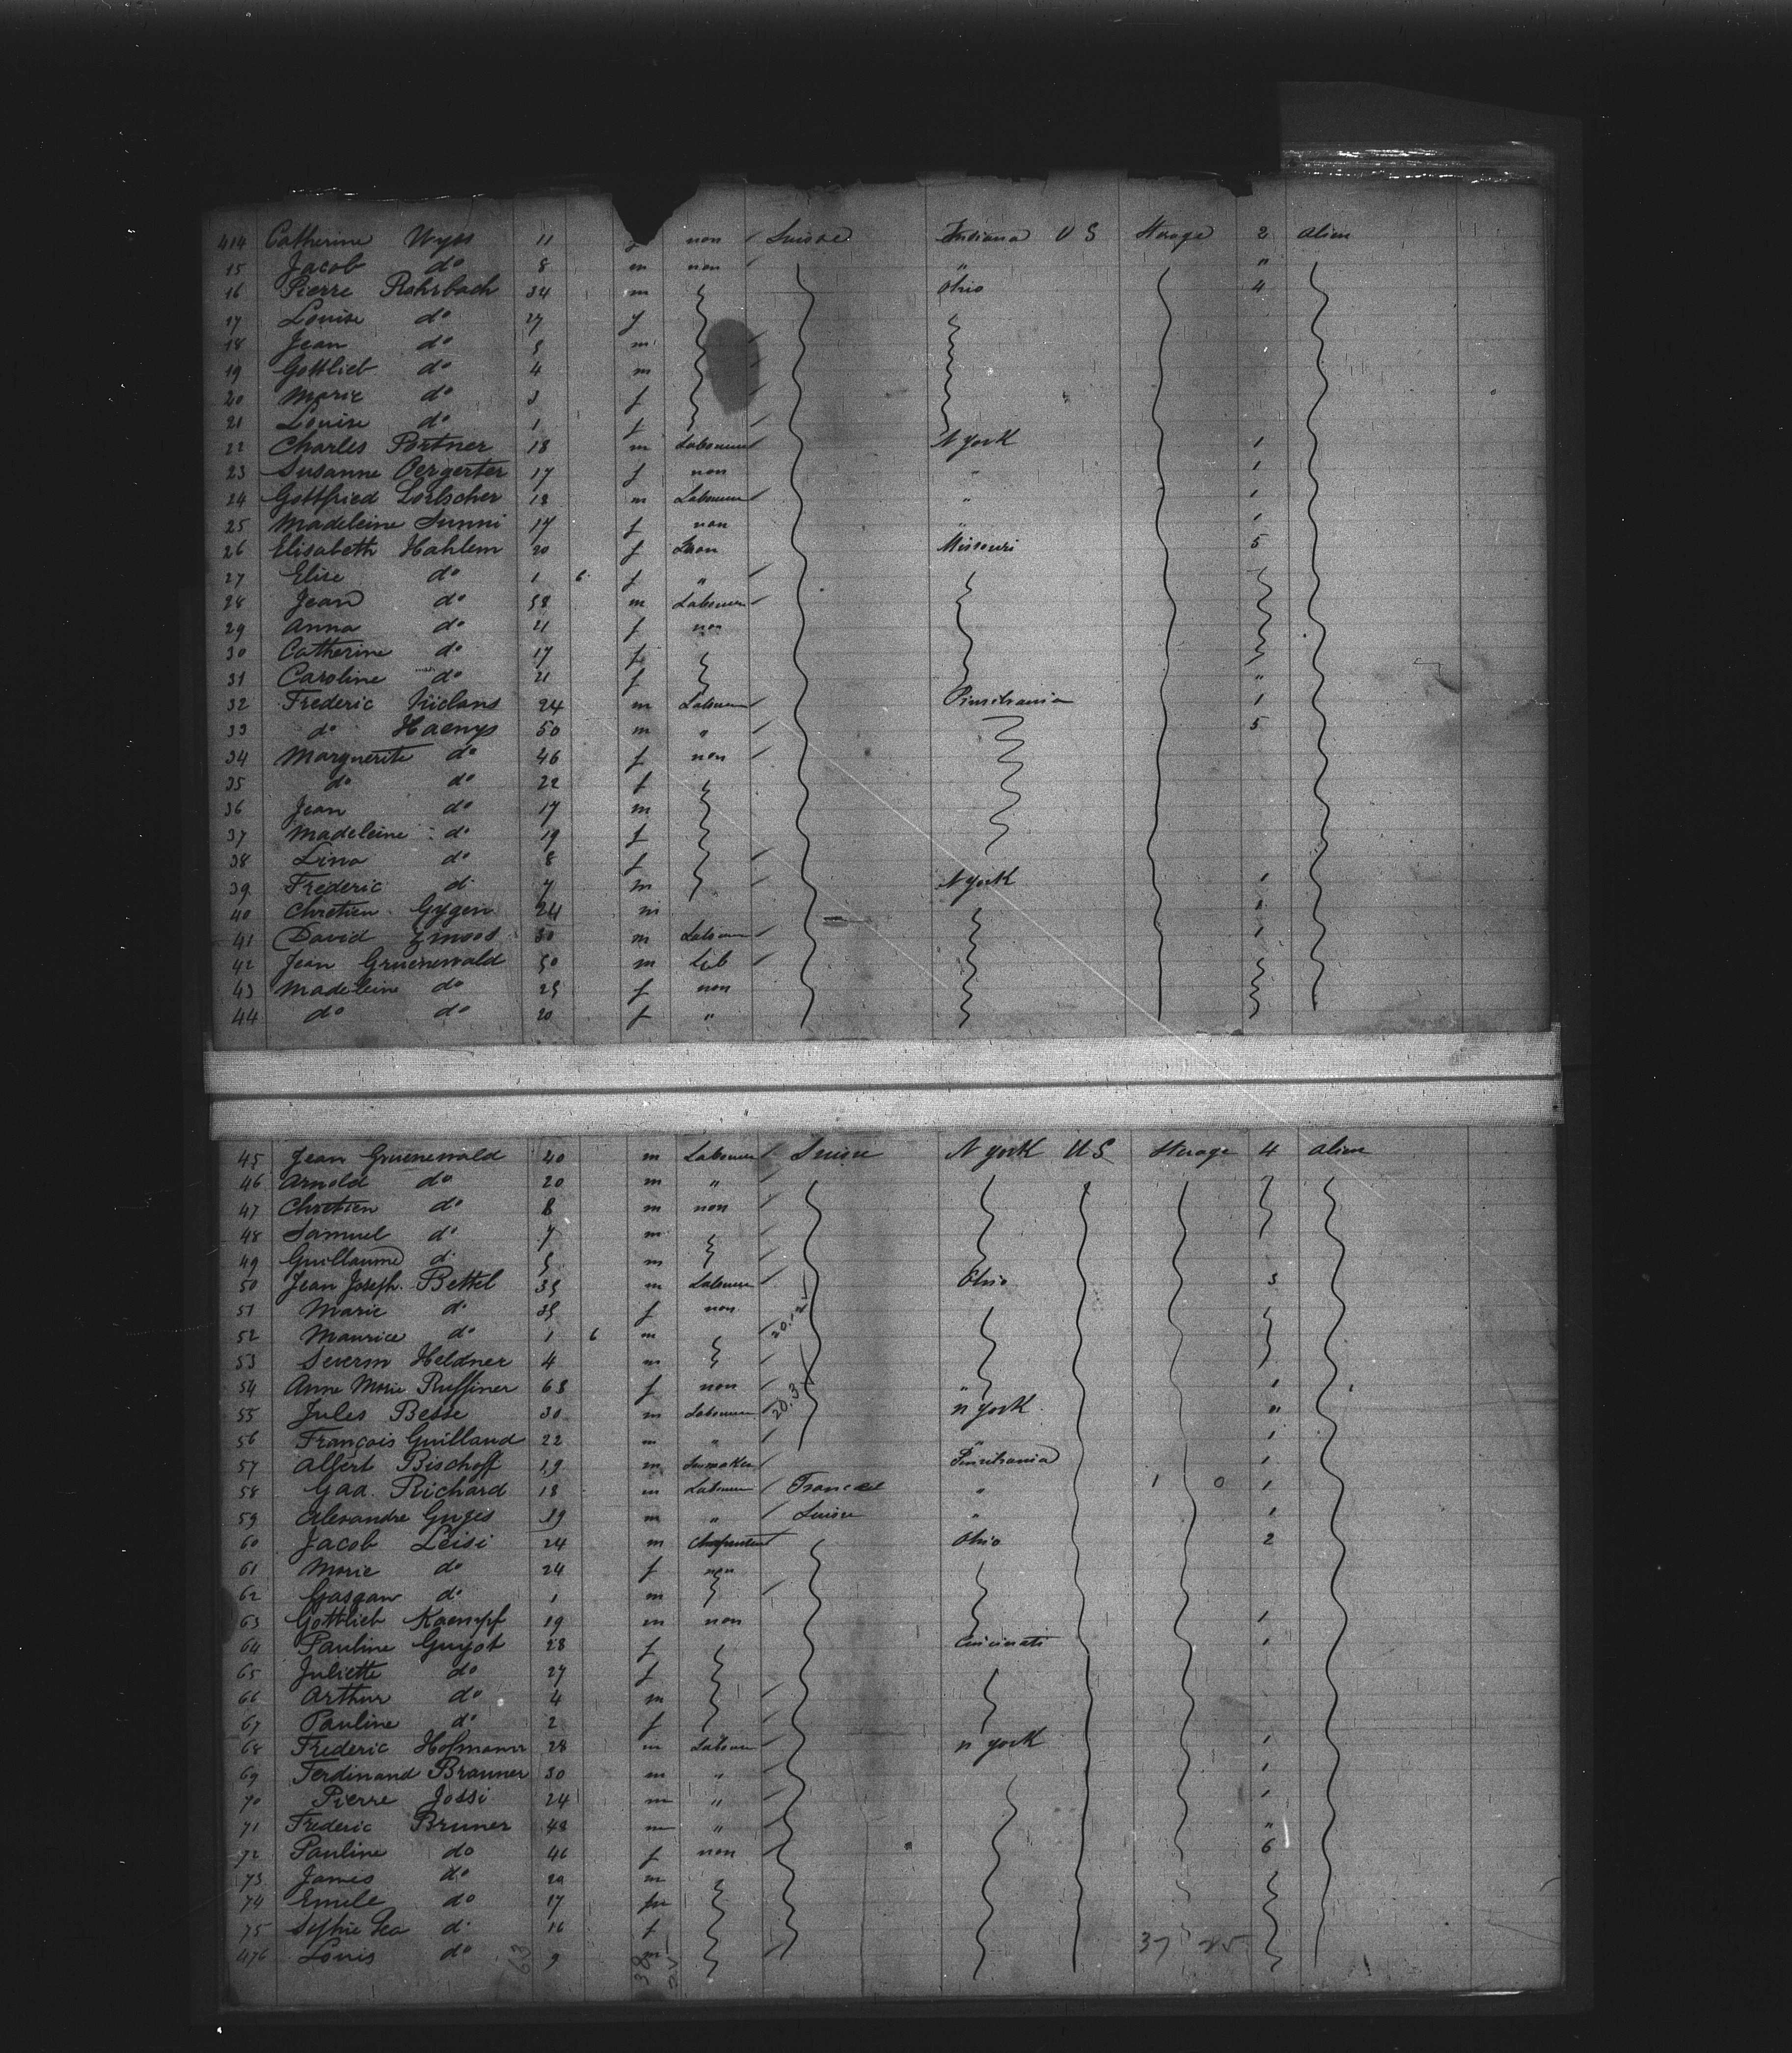 414 Catherine Wyss 11 f non Suisse Indiana U S Sterage 2 alien
15 Jacob do 8 m non " "
16 Pierre Rohrbach 34 m Ohio 4
17 Louise do 27 f
18 Jean do 5 m
19 Gottlieb do 4 m
20 Marie do 3 f
21 Louise do 1 f
22 Charles Portner 18 m Labourer N York 1
23 Susanne Oergerter 17 f non " 1
24 Gottfried Lortscher 18 m Labourer " 1
25 Madeleine Sunni 17 f non " 1
26 Elisabeth Hahlem 20 f non Missouri 5
27 Elise do 1 6 f "
28 Jean do 58 m Labourer
29 Anna do 21 f non
30 Catherine do 17 f
31 Caroline do 21 f "
32 Frederic 24 m Labourer Pinsilvania 1
33 do Haenys 50 m " 5
34 Marguerite do 46 f non
35 do do 22 f
36 Jean do 17 m
37 Madeleine do 19 f
38 Lina do 8 f
39 Frederic d 7 m N York 1
40 Chretien Gygen 24 m 1
41 David 30 m Labourer 1
42 Jean Gruenewald 50 m
43 Madeleine do 25 f non
44 do do 20 f "
45 Jean Gruenewald 40 m Labourer Suisse N York U S Sterage 4 alien
46 Arnold do 20 m "
47 Chretien do 8 m non
48 Samuel do 7 m
49 Guillaume d 5 m
50 Jean Joseph Bettel 35 m Labourer Ohio 3
51 Marie do 35 f non
52 Maurice do 1 6 m
53 Severin Heldner 4 m
54 Anne Marie Ruffiner 63 f non " 1
55 Jules Besse 30 m Labourer n York "
56 François Guilland 22 m " " 1
57 Albert Bischoff 19 m Pinsilvania 1
58 Gad Richard 18 m Labourer France " 1 0 1
59 Alexandre Guges 19 m " Suisse " 1
60 Jacob Leisi 24 m Charpentier Ohio 2
61 Marie do 24 f non
62 do 1 m
63 Gottlieb Kaempf 19 m non 1
64 Pauline Guyot 28 f Cincinati 1
65 Juliette do 27 f
66 Arthur do 4 m
67 Pauline do 2 f
68 Frederic Hofmann 28 m Labourer n york 1
69 Ferdinand Brauner 30 m " 1
70 Pierre Jossi 24 m " 1
71 Frederic Bruner 48 m " "
72 Pauline do 46 f non 6
73 James do 20 m
74 Emile do 17 m
75 Sophie Lea d 16 f
476 Louis do 9 m
63 38 25 37 25